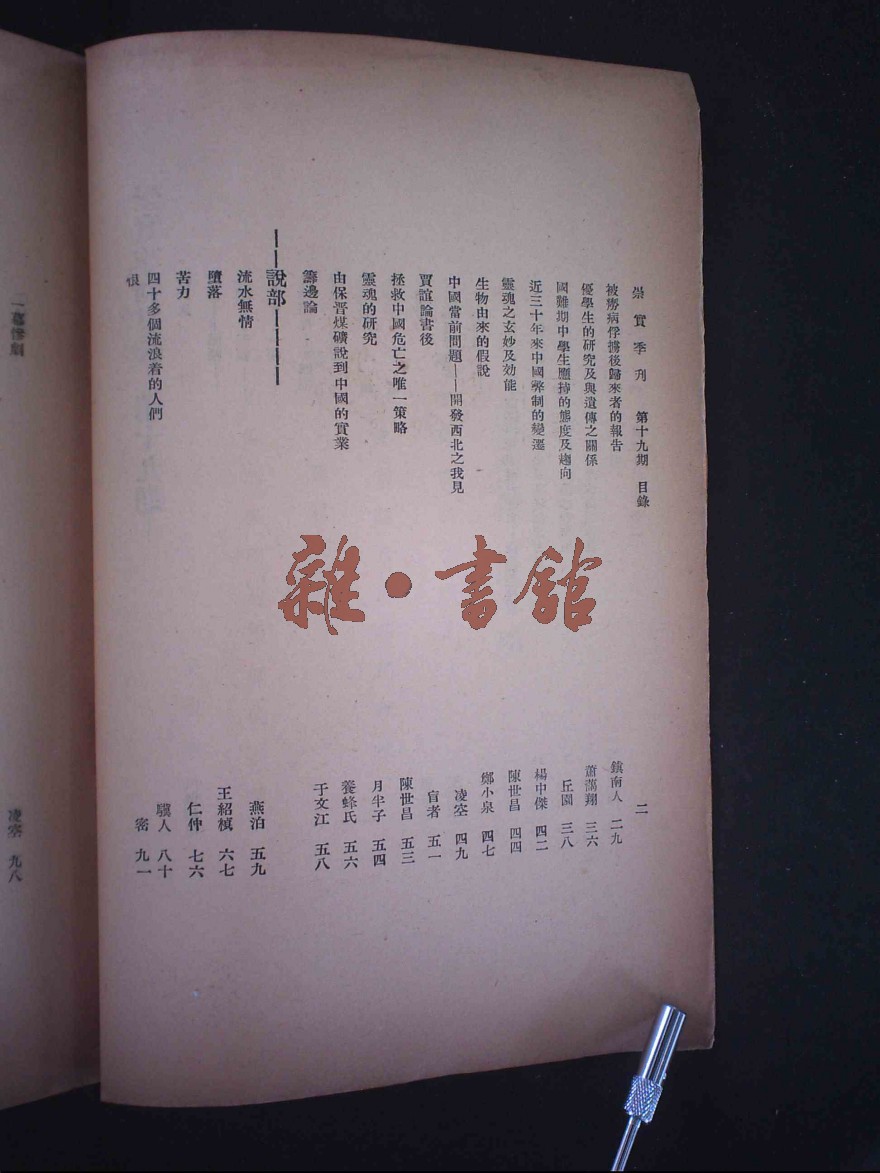 崇實季刊 第十九期 目錄 二
被癆病俘擄後歸來者的報告 鎮南人 二九
優學生的研究及與遺傳之關係 蕭藹翔 三六
國難期中學生應持的態度及趨向 丘園 三八
近三十年來中國幣制的變遷 楊中傑 四二
靈魂之玄妙及効能 陳世昌 四四
生物由來的假說 鄭小泉 四七
中國當前問題——開發西北之我見 凌空 四九
賈誼論書後 盲者 五一
拯救中國危亡之唯一策略 陳世昌 五三
靈魂的研究 月半子 五四
由保晉煤礦說到中國的實業 養蜂氏 五六
籌邊論 于文江 五八
——說部————
流水無情 燕泊 五九
墮落 王紹楨 六七
苦力 仁仲 七六
四十多個流浪着的人們 驥人 八十
恨 密 九一
一幕慘劇 凌空 九八
雜·書館